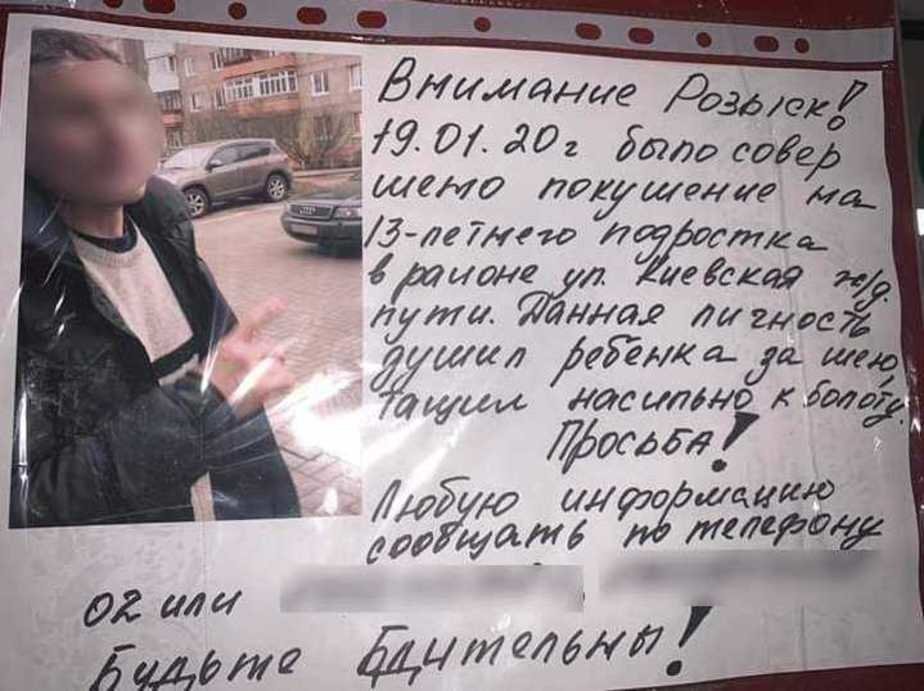 Внимание Розыск!
19.01.20г было совер
шено покушение на
13-летнего подростка
в районе ул. Киевская ж/д.
пути. Данная личность
душил ребёнка за шею,
тащил насильно к болоту.
Просьба!
Любую информацию
сообщать по телефону
02 или
Будьте Бдительны!